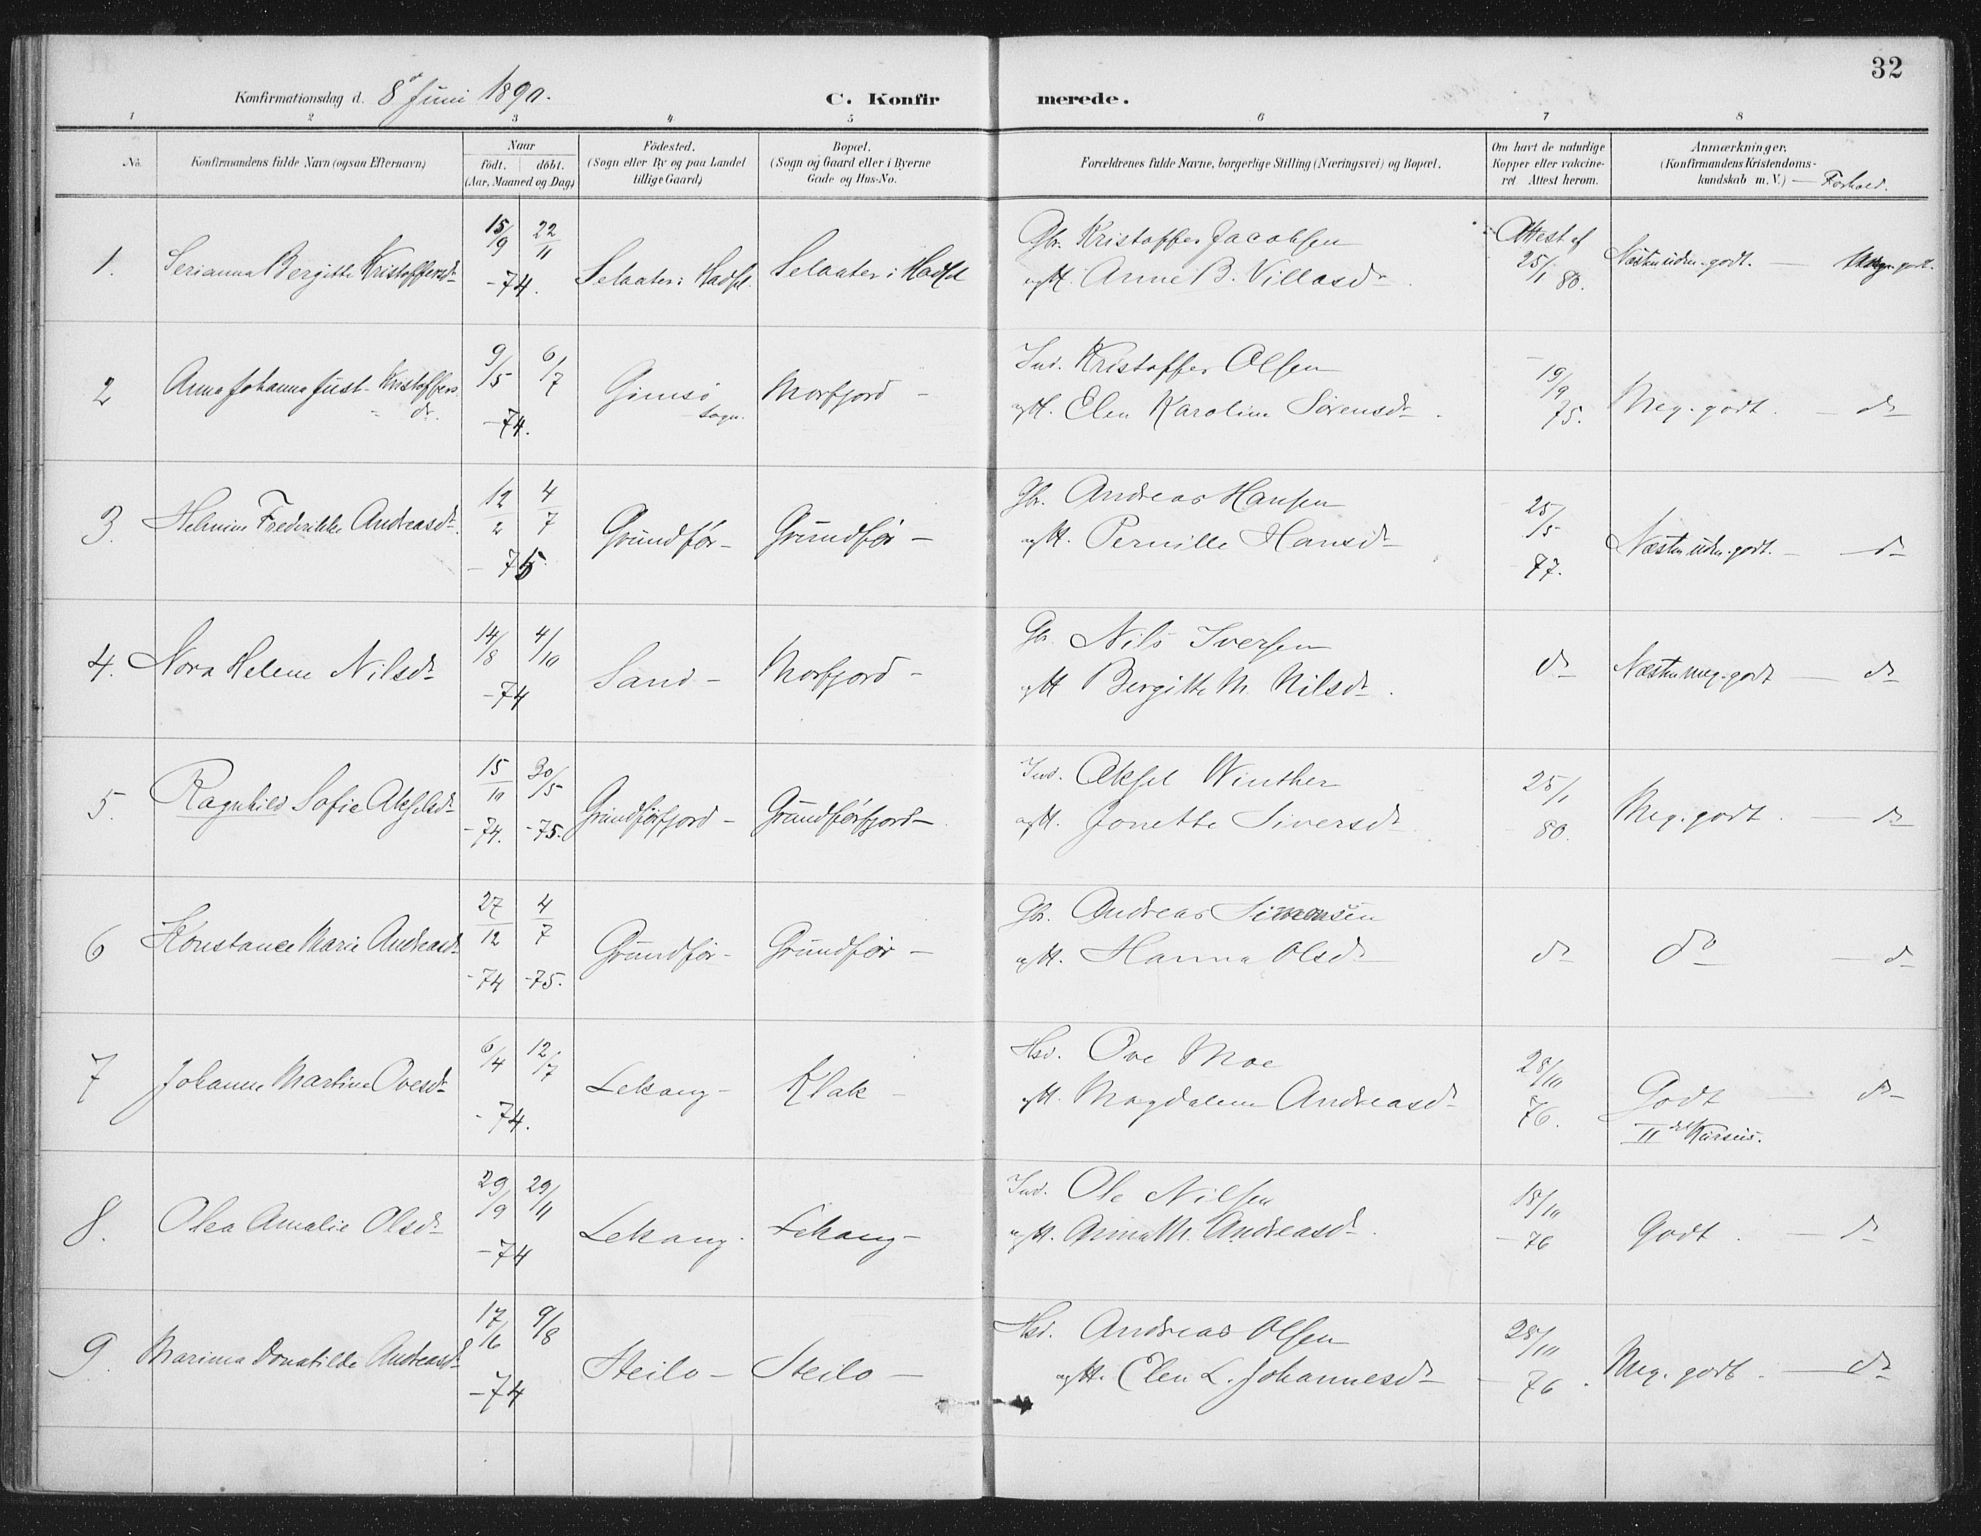 32
Konfirmationsdag d. 8de Juni 1890.
C. Konfirmerede.
1 2 3 4 5 6 7 8
No. Konfirmandens fulde Navn (ogsaa Efternavn) Naar födt. döbt. (Aar, Maaned og Dag) Födested. (Sogn eller By og paa Landet tillige Gaard) Bopæl. (Sogn og Gaard eller i Byerne Gade og Hus-No. Forældrenes fulde Navne, borgerlige Stilling (Næringsvei) og Bopæl. Om havt de naturlige Kopper eller vakcineret Attest herom. Anmærkninger. (Konfirmandens Kristendomskundskab m. V.) — Forhold.
1. Serianna Bergitte Kristoffersdr 15/9 22/11 -74. Selaater i Hadsel Selaater i Hadsel
Gbr. Kristoffer Jacobsen
og H. Anne B. Villasdr
Attest af 25/1 80. Næsten uden. godt. — Meg. godt.
2 Anna Johanna Just. Kristoffersdr. 9/5 6/7 -74. Gimsö Sogn. Morfjord -
Ind. Kristoffer Olsen
og H. Elen Karoline Sörensdr.
19/9 75. Meg. godt. — do
3. Helmine Frederikke Andreasdr. 12/2 4/7 - 75 Grundför - Grundför -
Gbr. Andreas Hansen
og H. Pernille Hansdr
25/5 77. Næsten uden. godt. — do
4. Nora Helene Nilsdr 14/8 4/10 -74 Sand - Morfjord -
Gbr. Nils Iversen
og H. Bergitte M. Nilsdr.
do Næsten meg. godt — do
5. Ragnhild Sofie Akselsdr 15/11 30/5 -74. -75. Grundförfjord - Grundförfjord -
Ind. Aksel Winther
og H. Jonette Siversdr
25/1 80. Meg. godt. — do
6 Konstance Marie Andreasdr 27/12 4/7 -74 -75. Grundför - Grundför -
Gbr. Andreas Simonsen
og H. Hanna Olsdr
do do — do
7 Johanne Martine Ovesdr 6/4 12/7 -74. Lekang - Klak -
Hsd. Ove Moe
og H. Magdalene Andreasdr
28/10 76. Godt — do
II det Kursus.
8. Olea Amalie Olsdr 29/9 29/11 -74 Lekang. Lekang -
Ind. Ole Nilsen
og H. Anna M. Andreasdr.
18/10 -76 Godt. — do
9. Marinna Donatilde Andreasdr 17/6 9/8 -74 Steilo - Steilo -
Hsd. Andreas Olsen
og H. Elen L. Johannesdr
28/10 - 76. Meg. godt. — do